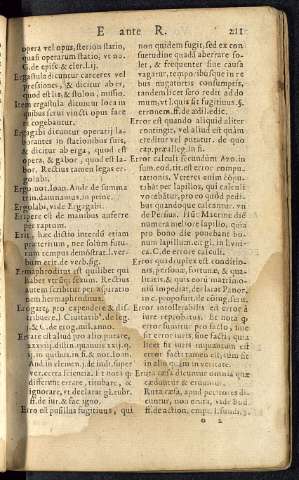 E ante R. 211
opera vel opus, sterion statio,
quasi operarum statio; ut no.
G. de episc. & cler. l. ij.
Ergastula dicuntur carceres vel
pressiones, & dicitur ab er,
quod est lit. & stolon, missio.
Item ergastula dicuntur loca in
quibus servi vincti opus face
re cogebantur.
Ergatis dicuntur operarij la-
borantes in stationibus suis,
& dicitur ab erga, quod est
opera, & gabor, quod est la-
bor. Rectius tamen legas er-
golabi.
Ergo not. Ioan. And. de summa
trin. damnamus, in princ.
Ergolabi, vide Ergagatis.
Eripere est de manibus auferre
per raptum.
Erit, hæc dictio interdũ etiam
præteritum, nec solùm futu-
rum tempus demõstrat. l. ver-
bum erit. de verb. sig.
Ermaphroditus est quilibet qui
habet utrũq; sexum. Rectius
autem scribitur per aspiratio
nem hermaphroditus.
Erogare, pro expendere & dis-
tribuere. l. j. C. ut de
& C. de erog. mil. anno.
Errare est aliud pro alio putare,
xxxvij. distin. quamvis. xxij.
q. ij. quidam. in fi. & not. Ioan.
And. in clemen. j. de iudi. super
ver. certa scientia. Et nota q
differunt errare, titubare, &
ignorare, ut declarat gl. rubr.
ff. de iur. & fac. igno.
Erro est pusillus fugitivus, qui
non quidem fugit, sed ex con
suetudine quadã aberrare so-
let, & frequenter sine causa
vagatur, temporibusque in re
bus nugatoriis consumptis,
tandem licet sero redit ad do
mum,
erronem. ff. de ædil. edic.
Error est quando aliquid aliter
contingit, vel aliud est quàm
creditur vel putatur. de quo
cap. præallega. in fi.
Error calculi secundùm Azo. in
sum. eod. tit. est error compu-
tationis. Veteres enim cõpu-
tabãt per lapillos, qui calculi
vocãbãtur, pro eo quòd pedi-
bus quandoque calcantur. un
de Persius. Hũc Macrine diẽ
numera meliore lapillo, quia
pro bono die ponebant bo-
num lapillum. et gl. in l. uni-
ca. C. de errore calculi.
Error quadruplex est conditio-
nis, personæ, fortunæ, & qua-
litatis, & quis eorũ matrimo-
niũ impediat, declarat Panor.
in c. proposuit. de cõiug. serv.
Error intollerabilis est error à
iure reprobatus. Et nota q
error sumitur pro facto, sine
sit error iuris, sine facti, quia
licet in iuris imperitum est
error facti tamen est, cùm sit
in scientia & animo.
Eruta cæsa dicuntur omnia quæ
cæduntur & eruuntur.
Ruta cæsa, apud peritores di-
cuntur, non eruta, vide Bud.
ff. de action. emp. l. fundi. §.
o 2